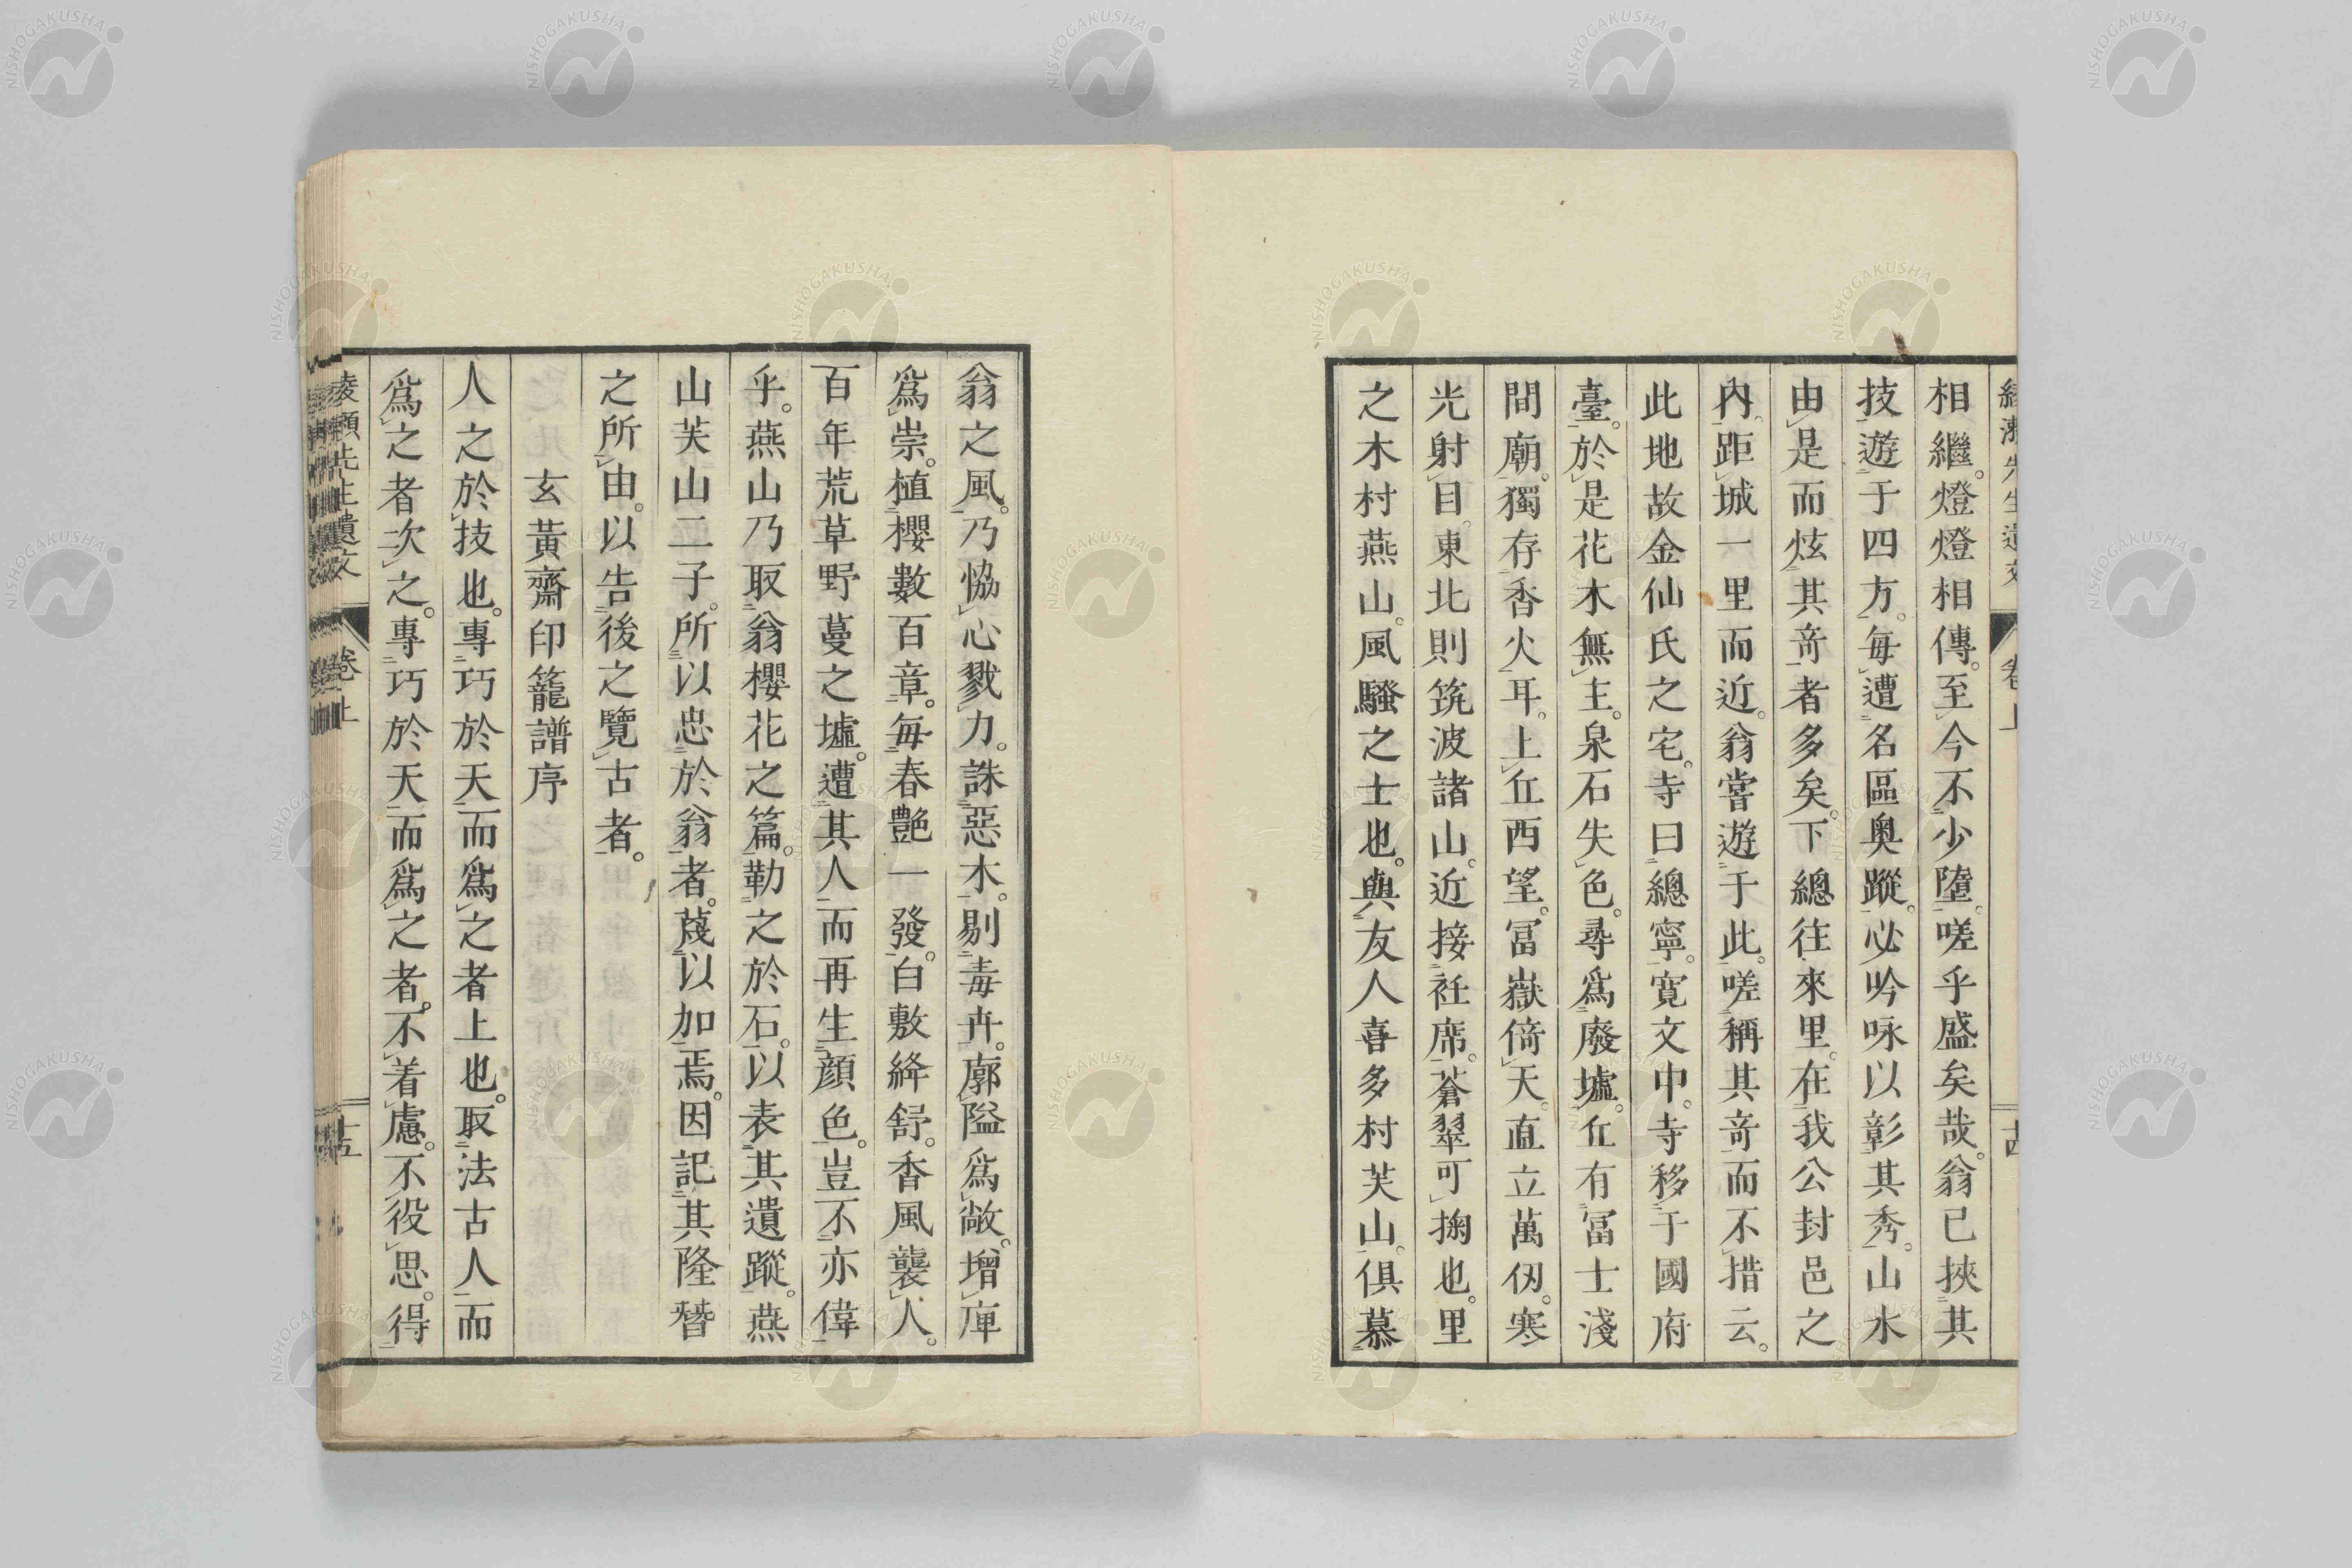 相繼。燈燈相傳。至今不少墮。嗟乎盛矣哉。翁已挾其
技遊于四方。每遭名區奥蹤。必吟咏以彰其秀。山水
由是而炫其奇者多矣。下總往來里。在我公封邑之
内。距城一里而近。翁嘗遊于此。嗟稱其奇而不措云。
此地故金仙氏之宅。寺曰總寧。寛文中。寺移于國府
臺。於是花木無主。泉石失色。尋爲廢墟。丘有冨士淺
間廟。獨存香火耳。上丘西望。冨嶽倚天。直立萬仭。寒
光射目。東北則筑波諸山。近接衽席。蒼翠可掬也。里
之木村燕山。風騷之士也。與友人喜多村芙山。俱慕
翁之風。乃恊心戮力。誅惡木。剔毒卉。廓隘爲敞。增庳
爲崇。植櫻數百章。每春艶一發。白敷絳舒。香風襲人。
百年荒草野蔓之墟。遭其人而再生顔色。豈不亦偉
乎。燕山乃取翁櫻花之篇。勒之於石。以表其遺蹤。燕
山芙山二子。所以忠於翁者。蔑以加焉。因記其隆替
之所由。以告後之覽古者。
玄黃齋印籠譜序
人之於技也。專巧於天而爲之者上也。取法古人而
爲之者次之。專巧於天而爲之者。不着慮。不役思。得
綾瀬先生遺文
卷上
十五
卷上
十四
NISHOGAKUSHA